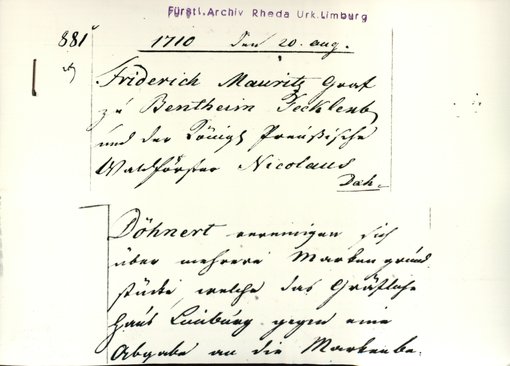 Fürstl. Archiv Rheda Urk. Limburg
881
1710 den 20. aug.
Friderich Mauritz Graf
zu Bentheim Tecklenb
und der Königl Preußische
Waldförster Nicolaus
Döh-
Döhnert vereinigen sich
über mehrere Markengrund
stücke welche das Gräfliche
Haus Limburg gegen eine
Abgabe an die Markenbe-